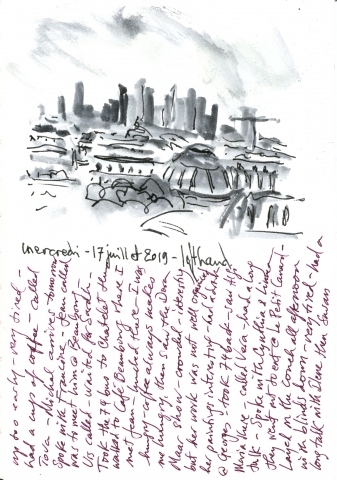 mercredi - 17 juillet 2019 - left hand
up too early - very tired -
had a cup of coffee - called
Tova - Michal arrives tomorrow
Spoke with Francoise - Jean called
was to meet him @ Beaubourg
Urs called - waited for Sarah -
Took the 76 bus to Chatelet then
walked to Café Beaubourg where I
met Jean - lunched there - I was
hungry - coffee always makes
me hungry. then saw the Dora
Maar show - crowded - interesting
but her work was not well
her painting had a drink
@ Georges took 76 back - saw
Maria here - called Vera - had a long
talk - Spoke with Cynthia &
they went out to eat @ Le Petit Canard -
Layed on the couch all afternoon
with blinds down - very tired - had a
long talk with then Susan